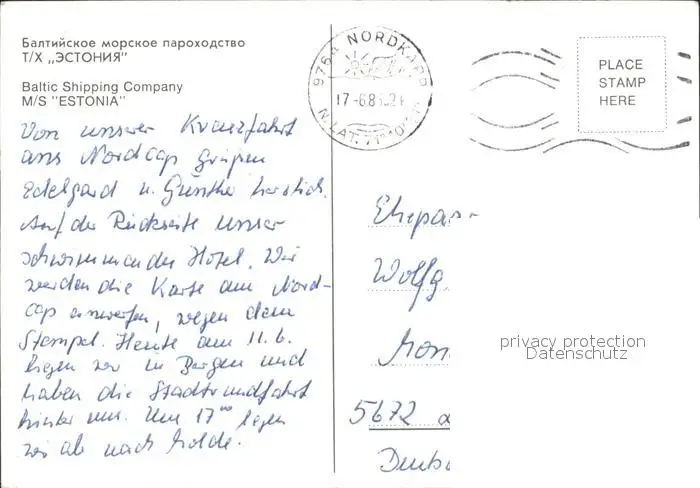 Балтийское морское пароходство
Т/Х „ЭСТОНИЯ"
Baltic Shipping Company
M/S "ESTONIA"
Von unserer Kreuzfahrt
ans Nordcap grüßen
Edelgard u. Günther herzlich.
Auf der Rückseite unser
schwimmendes Hotel. Wir
werden die Karte am Nord-
cap einwerfen, wegen dem
Stempel. Heute am 11.6.
liegen wir in Bergen und
haben die Stadtrundfahrt
hinter uns. Um 17⁰⁰ legen
wir ab nach Molde.
9764 NORDKAPP
17-6.8
N.LAT. 71°
PLACE
STAMP
HERE
Ehepaar
Wolfg
Mon
5672
Deuts
privacy protection
Datenschutz